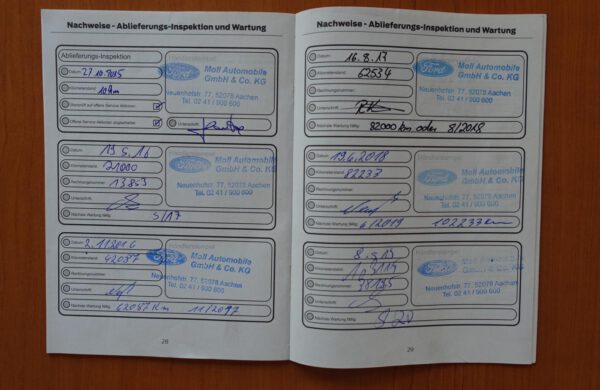 Nachweise - Ablieferungs-Inspektion und Wartung
Ablieferungs-Inspektion
Händlerstempel
Datum: 27.10.2015
Kilometerstand: 10 km
Überprüft auf offene Service-Aktionen:
Offene Service-Aktionen abgearbeitet:
Unterschrift:
Ford
Moll Automobile
GmbH & Co. KG
Neuenhofstr. 77, 52078 Aachen
Tel. 02 41 / 900 600
Datum: 19.5.16
Kilometerstand: 21000
Rechnungsnummer: 13853
Unterschrift:
Nächste Wartung fällig: 5/17
Händlerstempel
Ford
Moll Automobile
GmbH & Co. KG
Neuenhofstr. 77, 52078 Aachen
Tel. 02 41 / 900 600
Datum: 2.11.2016
Kilometerstand: 42087
Rechnungsnummer:
Unterschrift:
Nächste Wartung fällig: 62087 Km
Händlerstempel
Ford
Moll Automobile
GmbH & Co. KG
Neuenhofstr. 77, 52078 Aachen
Tel. 02 41 / 900 600
28
Nachweise - Ablieferungs-Inspektion und Wartung
Datum: 16.8.17
Kilometerstand: 62534
Rechnungsnummer:
Unterschrift:
Nächste Wartung fällig: 82000 km oder 8/2018
Ford
Moll Automobile
GmbH & Co. KG
Neuenhofstr. 77, 52078 Aachen
Tel. 02 41 / 900 600
Datum: 19.6.2018
Kilometerstand: 82237
Rechnungsnummer:
Unterschrift:
Nächste Wartung fällig: 6/2019 102237 km
Händlerstempel
Ford
Moll Automobile
GmbH & Co. KG
Neuenhofstr. 77, 52078 Aachen
Tel. 02 41 / 900 600
Datum: 8.5.19
Kilometerstand:
Rechnungsnummer:
Unterschrift:
Nächste Wartung fällig:
Händlerstempel
Ford
Moll Automobile
GmbH & Co. KG
Neuenhofstr. 77, 52078 Aachen
Tel. 02 41 / 900 600
29